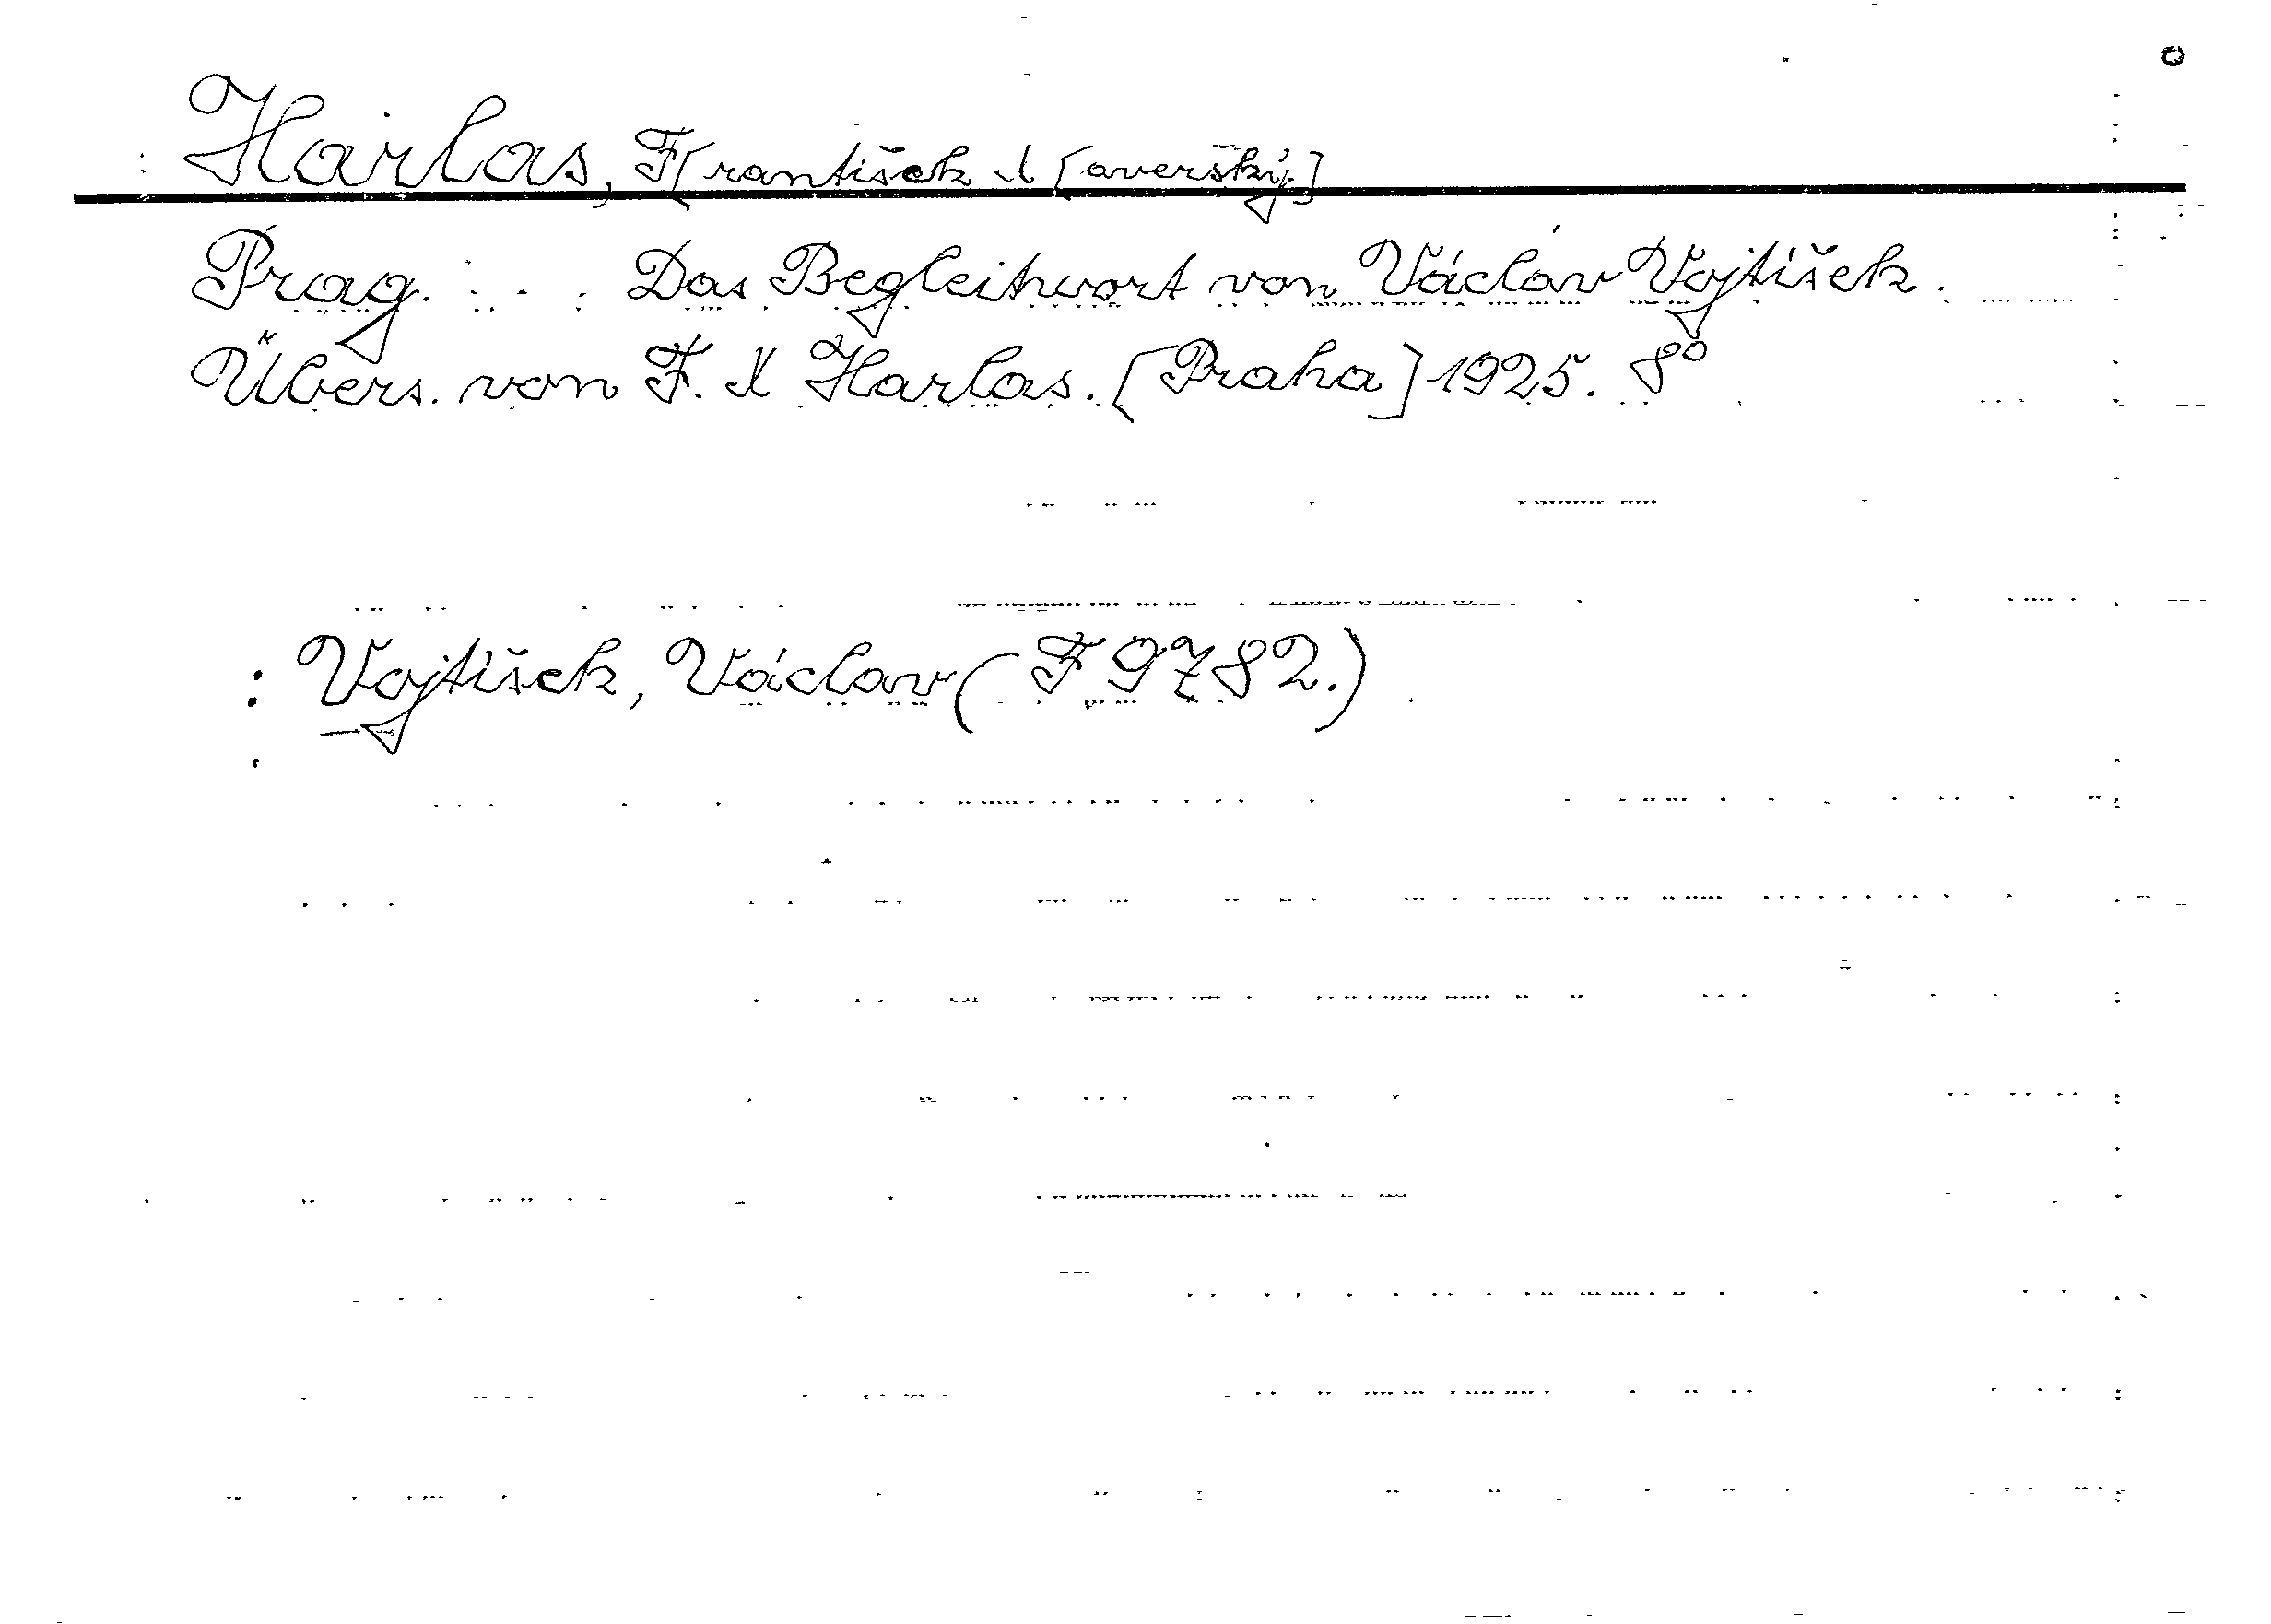 Harlas, F[rantišek X[averský]
Prag. . . . Das Begleitwort von Václav Vojtíšek.
Übers. von F. X Harlas. [Praha] 1925. 8°
: Vojtíšek, Václav (F 9782.)